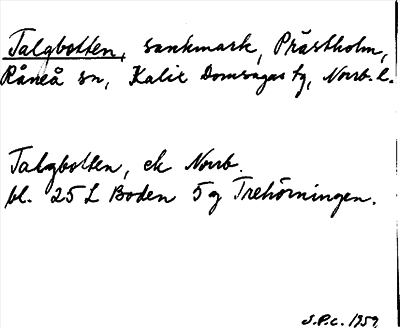 Talgbotten, sankmark, Prästholm,
Råneå sn, Kalix Domsagas tg, Norrb. l.
Talgbotten, ek Norrb.
bl. 25 L Boden 5 g Trehörningen.
S.P.C. 1959.